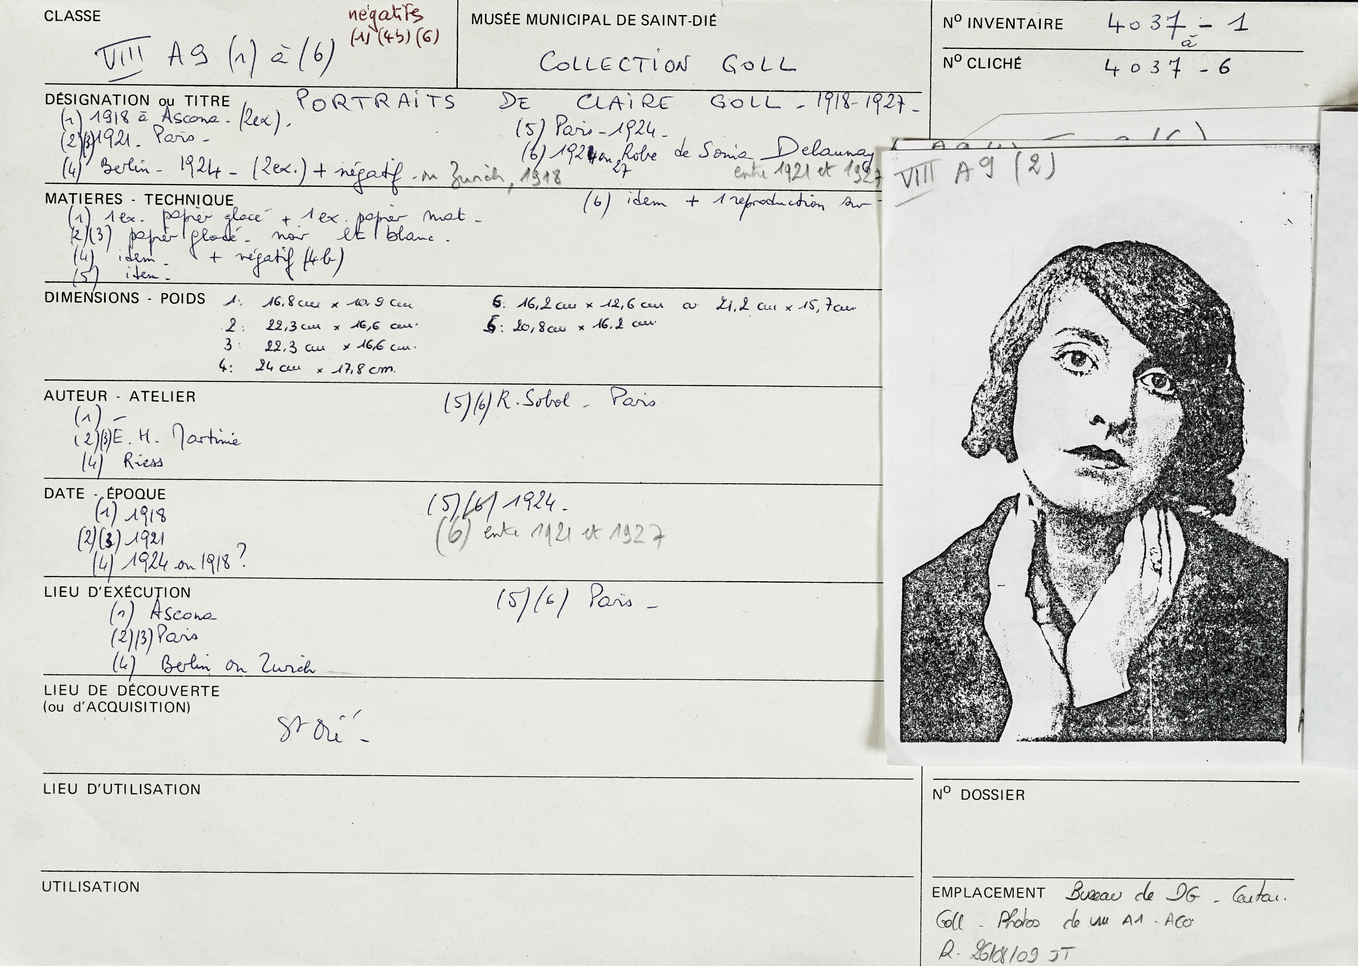 CLASSE
négatifs
(1) (4b) (6)
VIII A9 (1) à (6)
MUSÉE MUNICIPAL DE SAINT-DIÉ
COLLECTION GOLL
N° INVENTAIRE 4037 - 1
à
N° CLICHÉ 4037 - 6
DÉSIGNATION ou TITRE PORTRAITS DE CLAIRE GOLL - 1918-1927 -
(1) 1918 à Ascona - (2ex).
(2)(3) 1921. Paris -
(4) Berlin - 1924 - (2ex.) + négatif - ou Zurich, 1918
(5) Paris - 1924 -
(6) 1924 ou Robe de Sonia Delaunay
27
entre 1921 et 1927
MATIERES - TECHNIQUE
(1) 1 ex. papier glacé + 1 ex. papier mat -
(2)(3) papier glacé - noir et blanc.
(4) idem - + négatif (4b)
(5) idem -
(6) idem + 1 reproduction sur
DIMENSIONS - POIDS
1: 16,8 cm x 10,9 cm
2: 22,3 cm x 16,6 cm.
3: 22,3 cm x 16,6 cm.
4: 24 cm x 17,8 cm.
6: 16,2 cm x 12,6 cm ou 21,2 cm x 15,7 cm
5: 20,8 cm x 16,2 cm
AUTEUR - ATELIER
(1) -
(2)(3) E. H. Martinie
(4) Riess
(5)(6) R. Sobol - Paris
DATE - ÉPOQUE
(1) 1918
(2)(3) 1921
(4) 1924 ou 1918 ?
(5)(6) 1924 -
(6) entre 1921 et 1927
LIEU D'EXÉCUTION
(1) Ascona
(2)(3) Paris
(4) Berlin ou Zurich
(5)(6) Paris -
LIEU DE DÉCOUVERTE
(ou d'ACQUISITION)
St Dié -
LIEU D'UTILISATION
UTILISATION
VIII A9 (2)
N° DOSSIER
EMPLACEMENT Bureau de DG -
Goll - Photos de A1 - A60
R. 26/08/09 JT